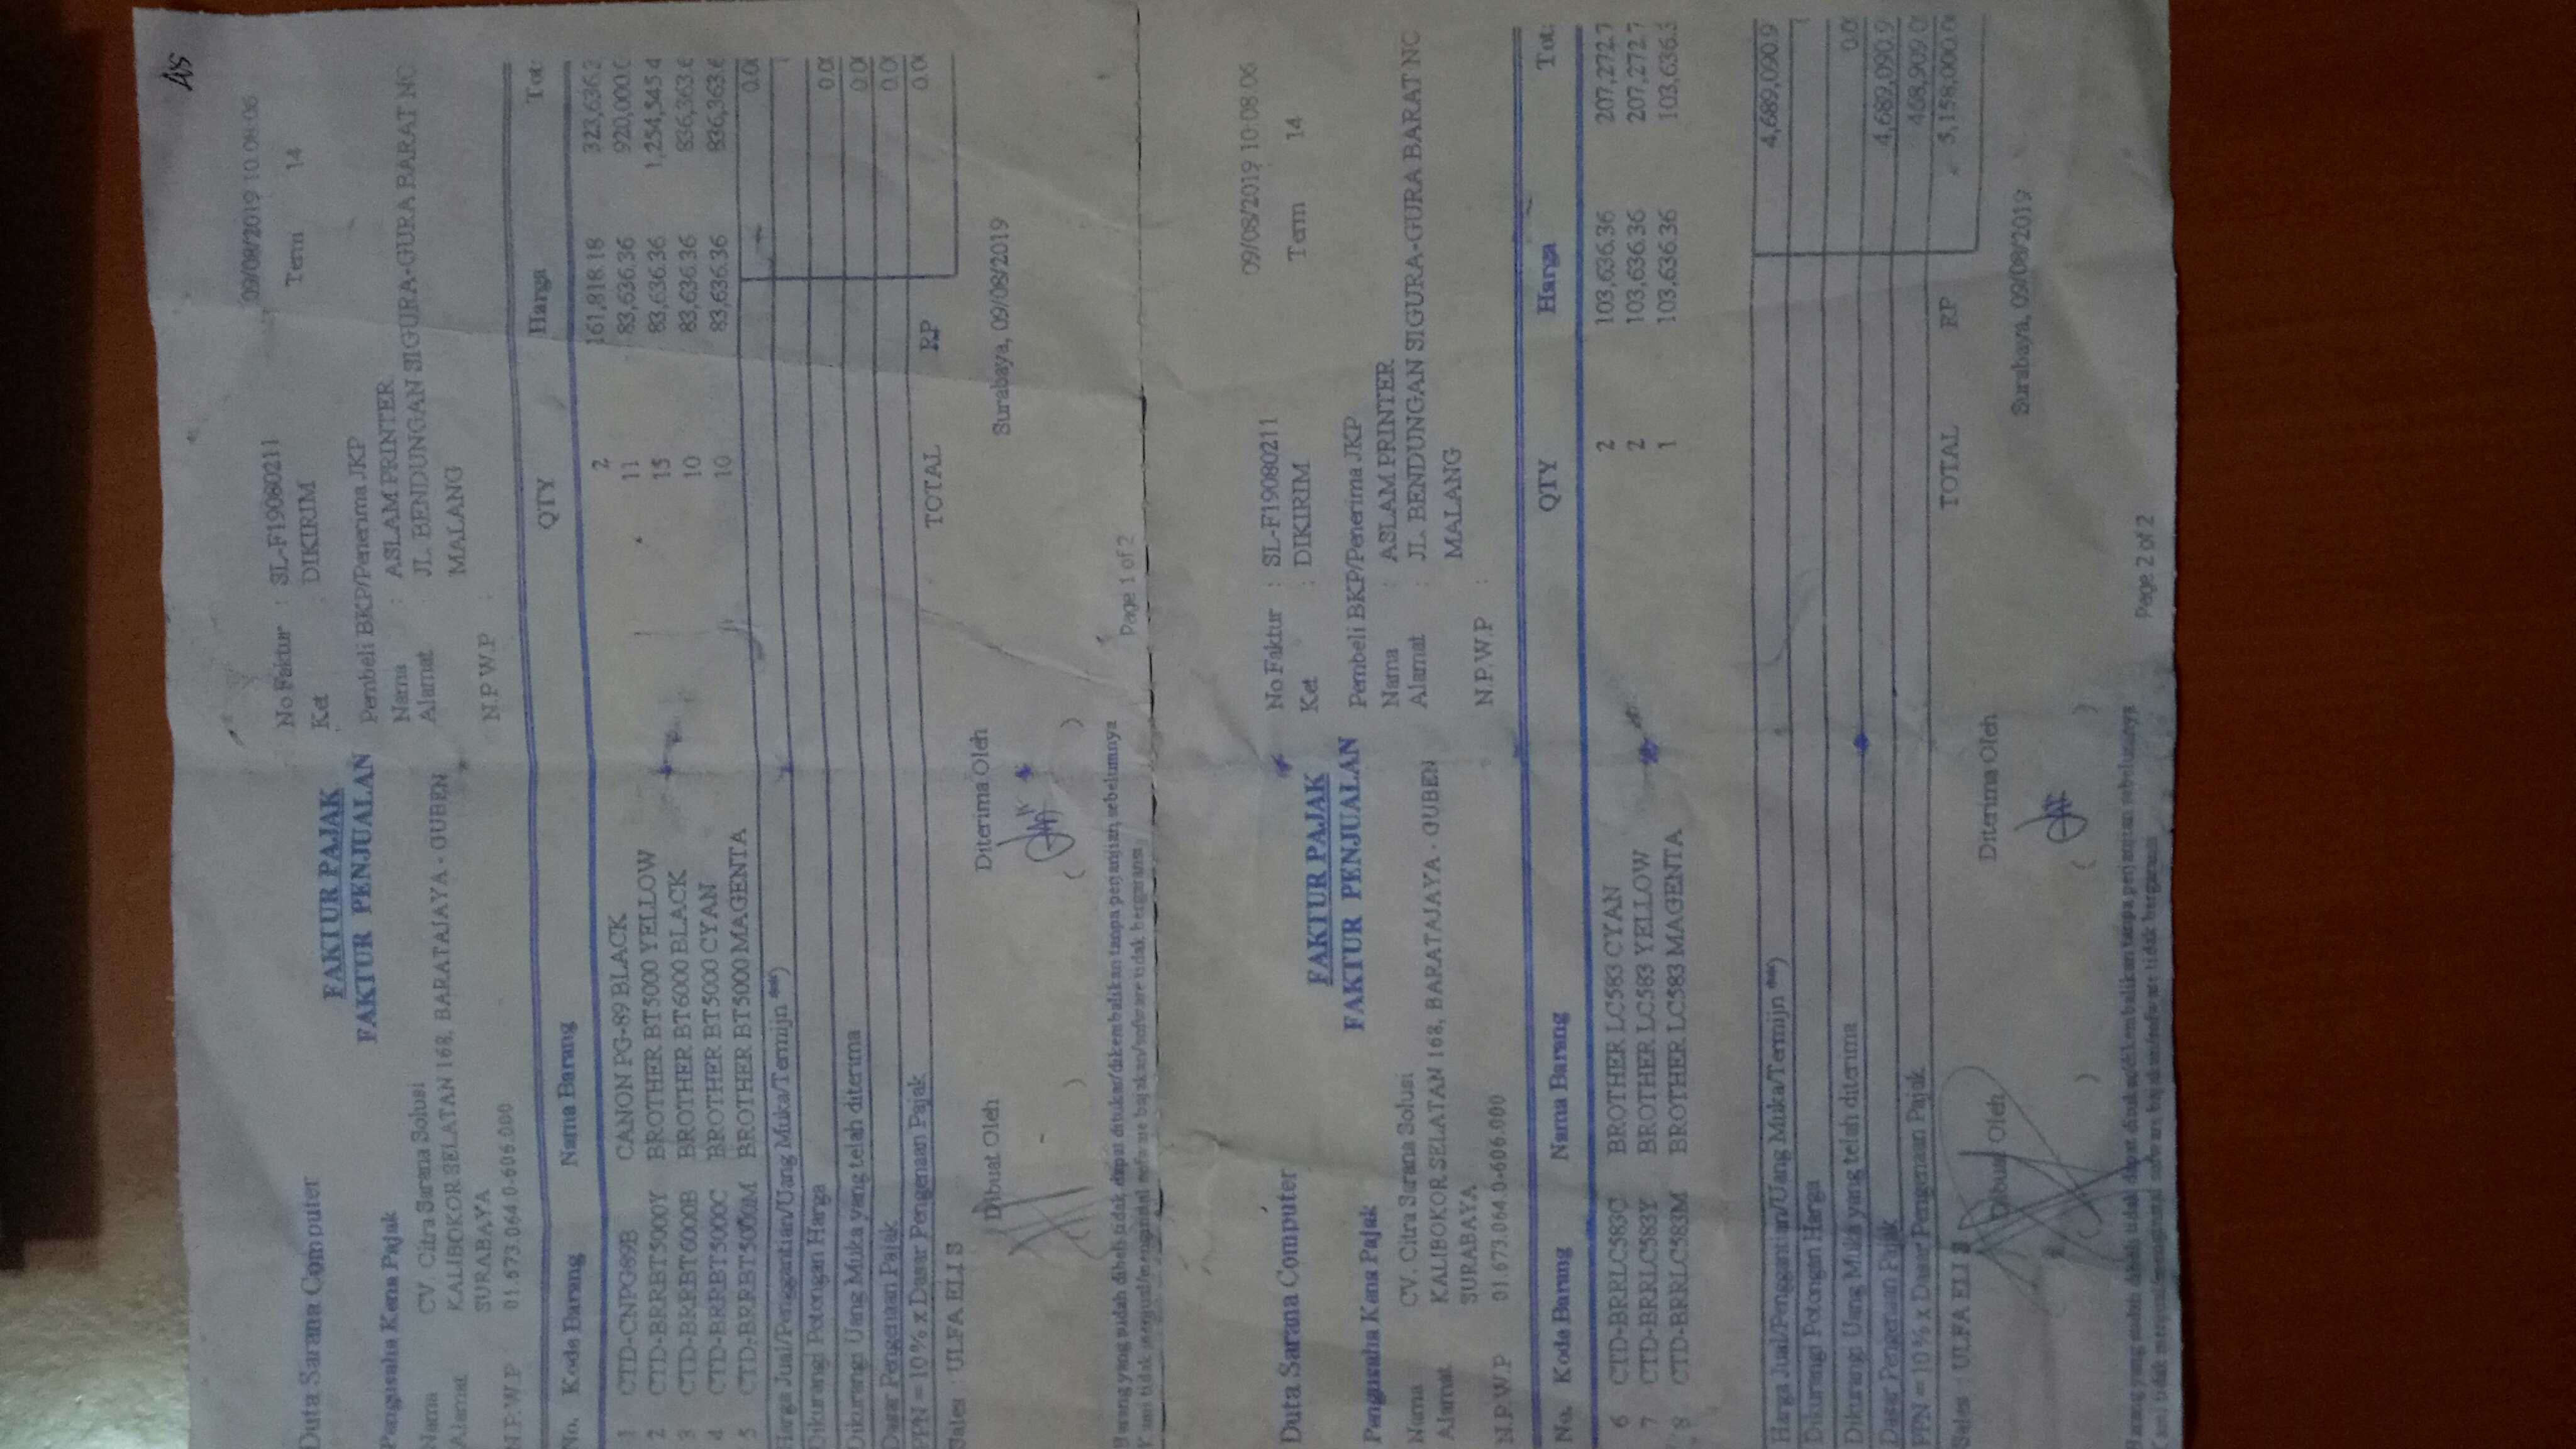 Duta Sarana Computer
FAKTUR PAJAK
FAKTUR PENJUALAN
09/08/2019 10:08:06
No Faktur : SL-F19080211 Term 14
Ket : DIKIRIM
Pengusaha Kena Pajak
Pembeli BKP/Penerima JKP
Nama CV. Citra Sarana Solusi
Nama : ASLAM PRINTER
Alamat KALIBOKOR SELATAN 168, BARATAJAYA - GUBEN
Alamat : JL. BENDUNGAN SIGURA-GURA BARAT NO
SURABAYA
MALANG
N.P.W.P 01.673.064.0-606.000
N.P.W.P :
No. Kode Barang Nama Barang QTY Harga Tot
1 CTD-CNPG89B CANON PG-89 BLACK 2 161,818.18 323,636.
2 CTD-BRRBT5000Y BROTHER BT5000 YELLOW 11 83,636.36 920,000.
3 CTD-BRRBT6000B BROTHER BT6000 BLACK 15 83,636.36 1,254,545.4
4 CTD-BRRBT5000C BROTHER BT5000 CYAN 10 83,636.36 836,363.6
5 CTD-BRRBT5000M BROTHER BT5000 MAGENTA 10 83,636.36 836,363.6
Harga Jual/Penggantian/Uang Muka/Termijn **) 0.0
Dikurangi Potongan Harga
Dikurangi Uang Muka yang telah diterima 0.0
Dasar Pengenaan Pajak 0.0
PPN = 10% x Dasar Pengenaan Pajak 0.0
TOTAL RP 0.0
Sales : ULFA ELI S
Surabaya, 09/08/2019
Dibuat Oleh
Diterima Oleh
Barang yang sudah dibeli tidak dapat ditukar/dikembalikan tanpa perjanjian sebelumnya
Kami tidak menjual/menginstal software bajakan/software tidak bergaransi
Page 1 of 2
Duta Sarana Computer
FAKTUR PAJAK
FAKTUR PENJUALAN
09/08/2019 10:08:06
No Faktur : SL-F19080211 Term 14
Ket : DIKIRIM
Pengusaha Kena Pajak
Pembeli BKP/Penerima JKP
Nama CV. Citra Sarana Solusi
Nama : ASLAM PRINTER
Alamat KALIBOKOR SELATAN 168, BARATAJAYA - GUBEN
Alamat : JL. BENDUNGAN SIGURA-GURA BARAT NO
SURABAYA
MALANG
N.P.W.P 01.673.064.0-606.000
N.P.W.P :
No. Kode Barang Nama Barang QTY Harga Tot
6 CTD-BRRLC583C BROTHER LC583 CYAN 2 103,636.36 207,272.7
7 CTD-BRRLC583Y BROTHER LC583 YELLOW 2 103,636.36 207,272.7
8 CTD-BRRLC583M BROTHER LC583 MAGENTA 1 103,636.36 103,636.3
Harga Jual/Penggantian/Uang Muka/Termijn **) 4,689,090.9
Dikurangi Potongan Harga
Dikurangi Uang Muka yang telah diterima 0.0
Dasar Pengenaan Pajak 4,689,090.9
PPN = 10% x Dasar Pengenaan Pajak 468,909.0
TOTAL RP 5,158,000.0
Sales : ULFA ELI S
Surabaya, 09/08/2019
Dibuat Oleh
Diterima Oleh
Barang yang sudah dibeli tidak dapat ditukar/dikembalikan tanpa perjanjian sebelumnya
Kami tidak menjual/menginstal software bajakan/software tidak bergaransi
Page 2 of 2